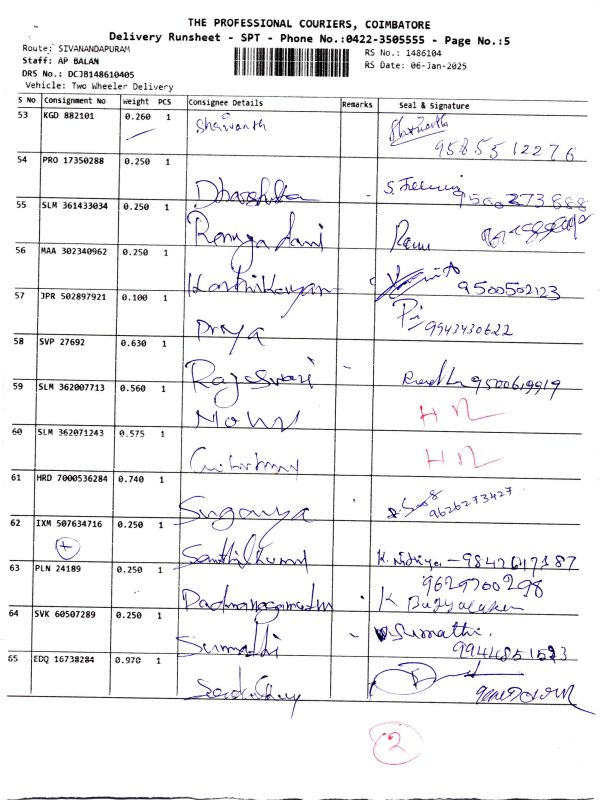 THE PROFESSIONAL COURIERS, COIMBATORE
Delivery Runsheet - SPT - Phone No.:0422-3505555 - Page No.:5
Route: SIVANANDAPURAM
RS No.: 1486104
Staff: AP BALAN
RS Date: 06-Jan-2025
DRS No.: DCJB148610405
Vehicle: Two Wheeler Delivery
S No Consignment No Weight PCS Consignee Details Remarks Seal & Signature
53 KGD 882101 0.260 1 Shaiwanth
9585512276
54 PRO 17350288 0.250 1 Dharshika S. 9500273888
55 SLM 361433034 0.250 1 Ramya dani Ramu
56 MAA 302340962 0.250 1 Karthikeyan 9500502123
57 JPR 502897921 0.100 1 Priya Pri 9943430622
58 SVP 27692 0.630 1 Rajeswari 9500619919
59 SLM 362007713 0.560 1 Mohn
60 SLM 362071243 0.575 1
61 HRD 7000536284 0.740 1 Suganya 9626273427
62 IXM 507634716 0.250 1 Santhilkumar K. Nithiya - 9842617187
+
63 PLN 24189 0.250 1 9629700298
K
64 SVK 60507289 0.250 1 Sumathi Sumathi.
9944851523
65 EDQ 16738284 0.970 1
2